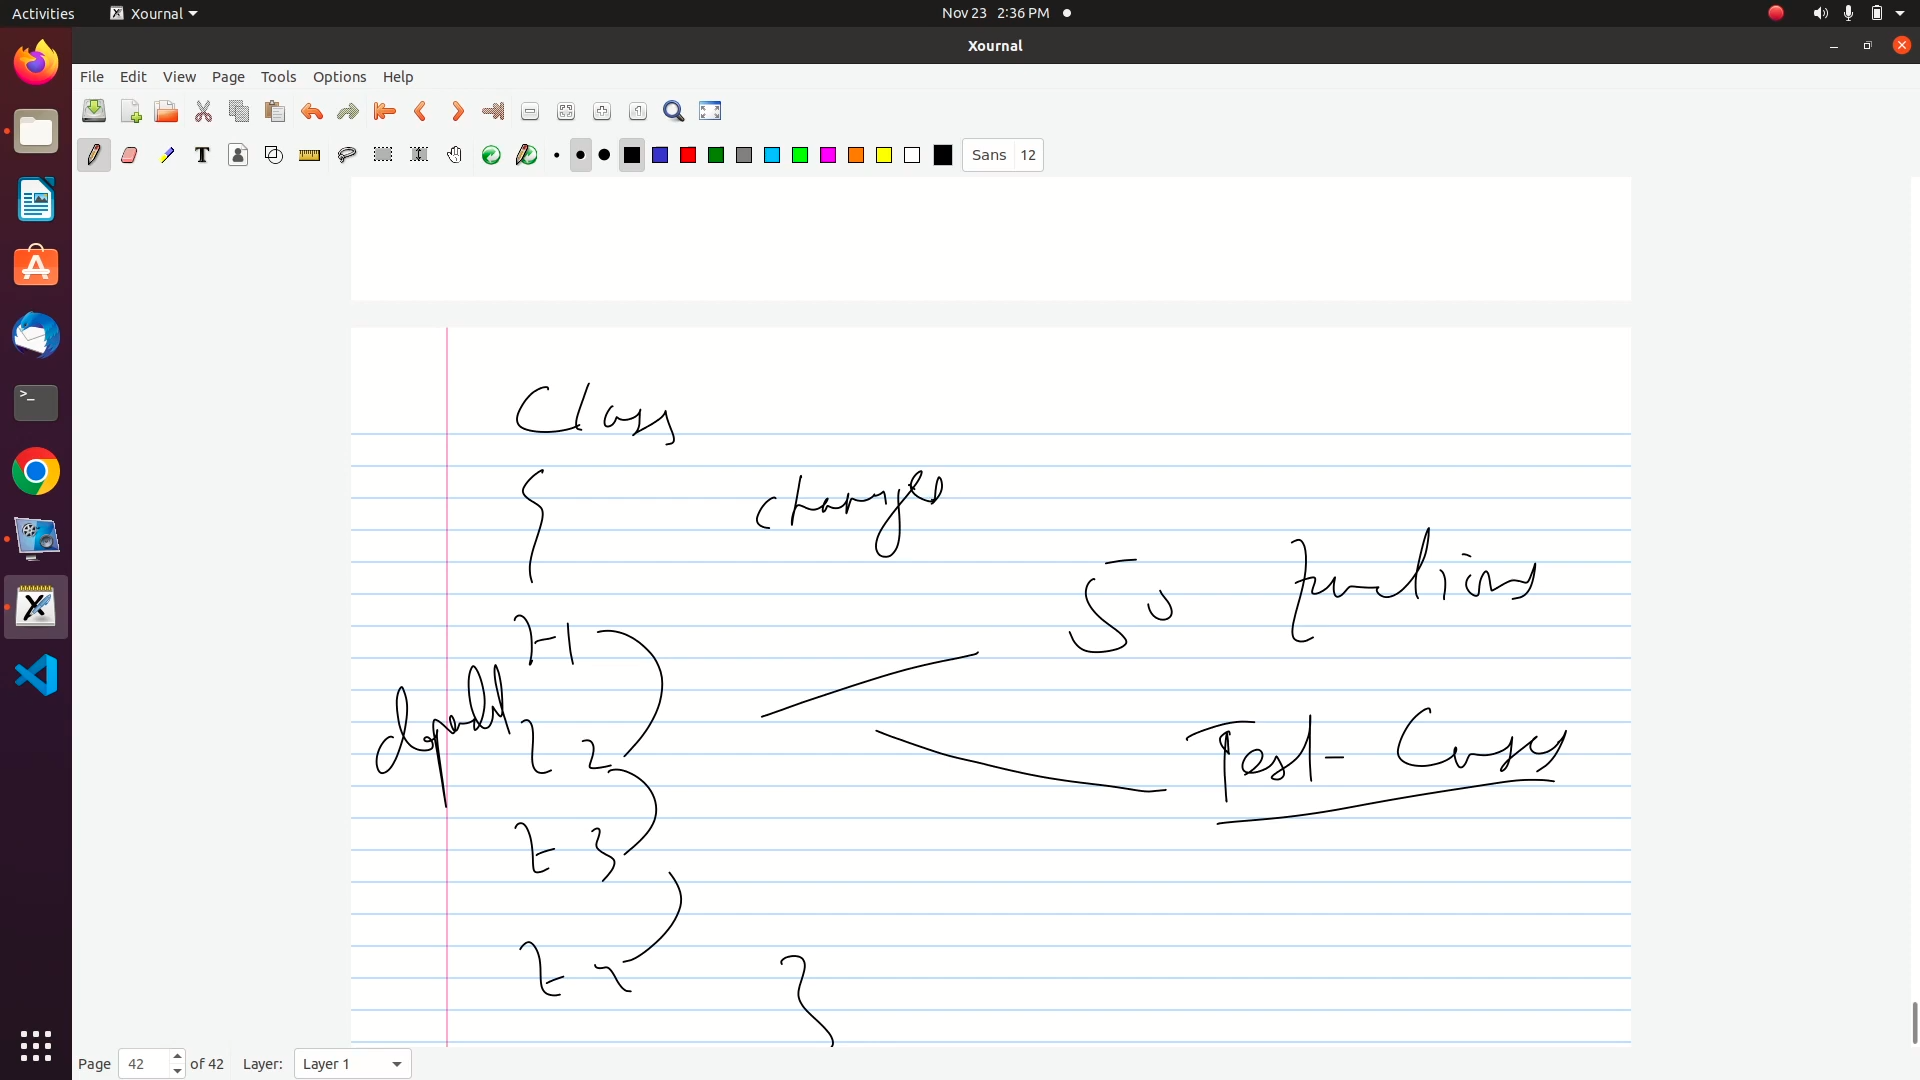 Activities Xournal Nov 23 2:36 PM
Xournal
File Edit View Page Tools Options Help
T Sans 12
Class
{
changes
50 functions
F-1
depend
F 2
Test-Cases
F 3
F n
}
Page 42 of 42 Layer: Layer 1